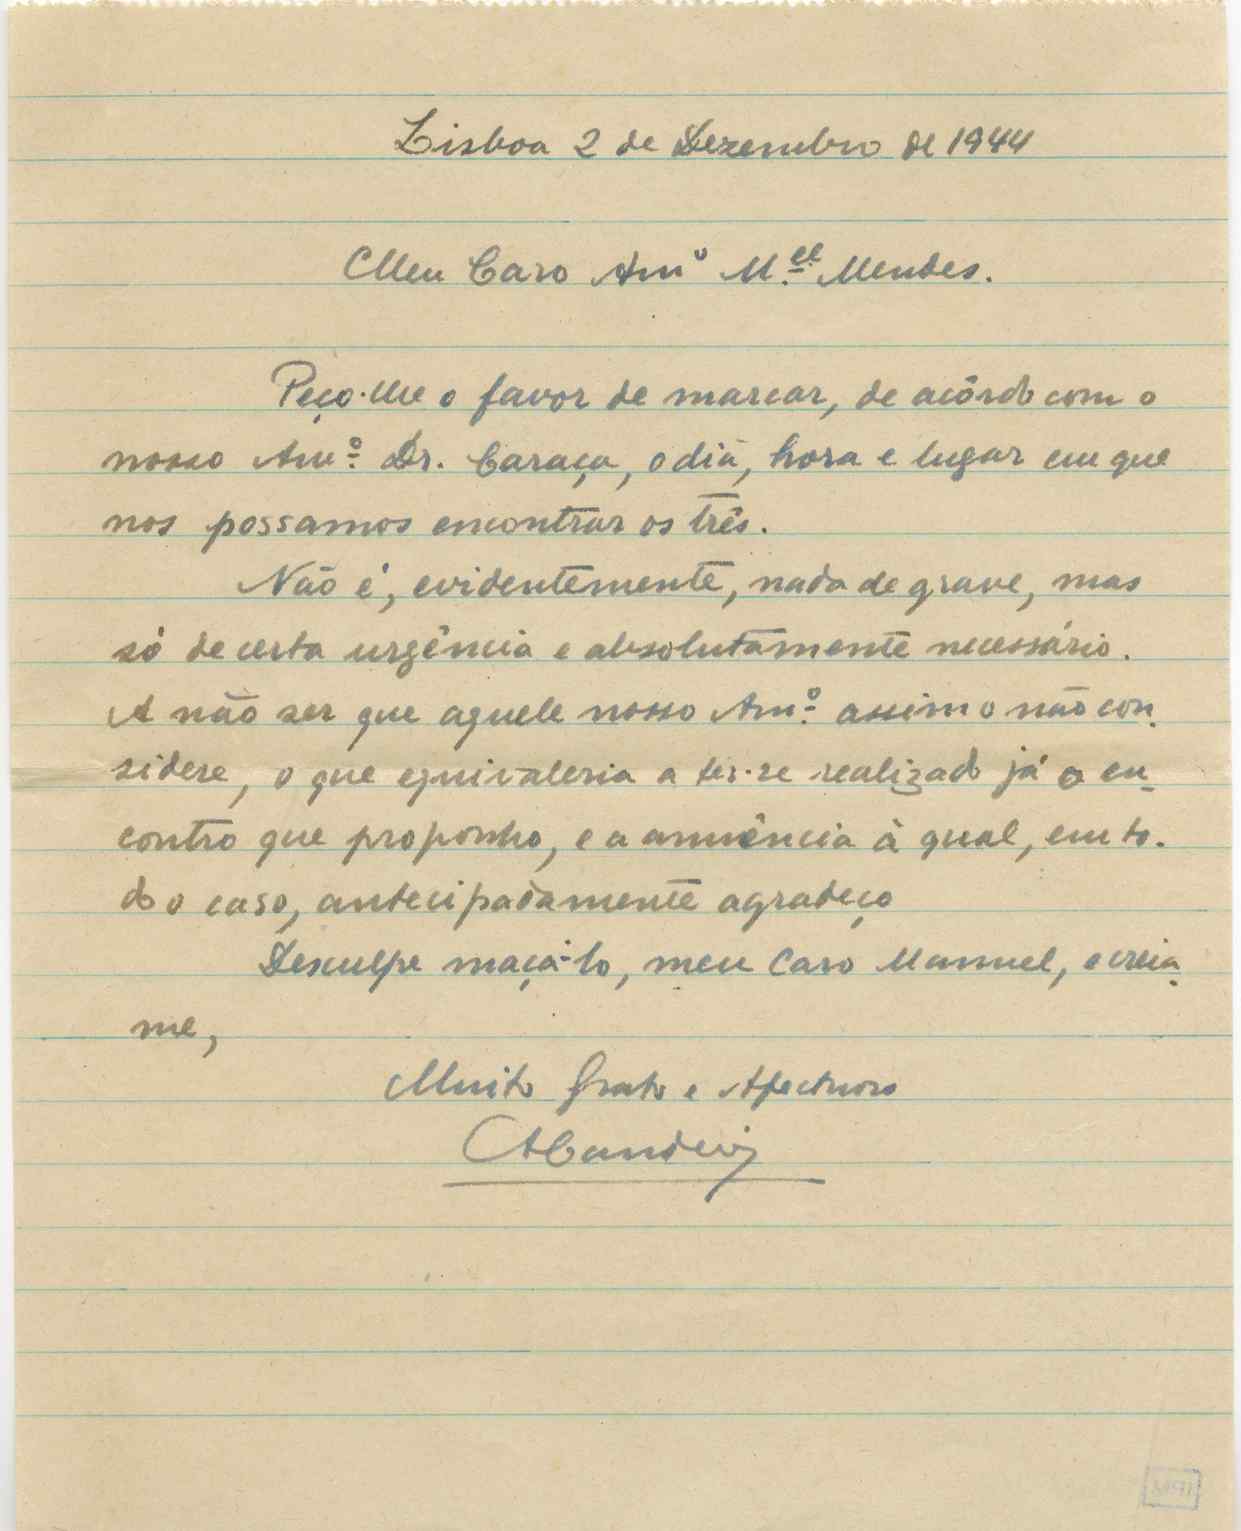 Lisboa 2 de Dezembro de 1944
Meu Caro Amº M.el Mendes.
Peço-lhe o favor de marcar, de acôrdo com o
nosso Amº. Dr. Caraça, o dia, hora e lugar em que
nos possamos encontrar os três.
Não é, evidentemente, nada de grave, mas
só de certa urgência e absolutamente necessário.
A não ser que aquele nosso Amº. assim o não con-
sidere, o que equivaleria a ter-se realizado já o en-
contro que proponho, e a anuência à qual, em to-
do o caso, antecipadamente agradeço
Desculpe maçá-lo, meu Caro Manuel, e creia-
me,
Muito Grato e Afectuoso